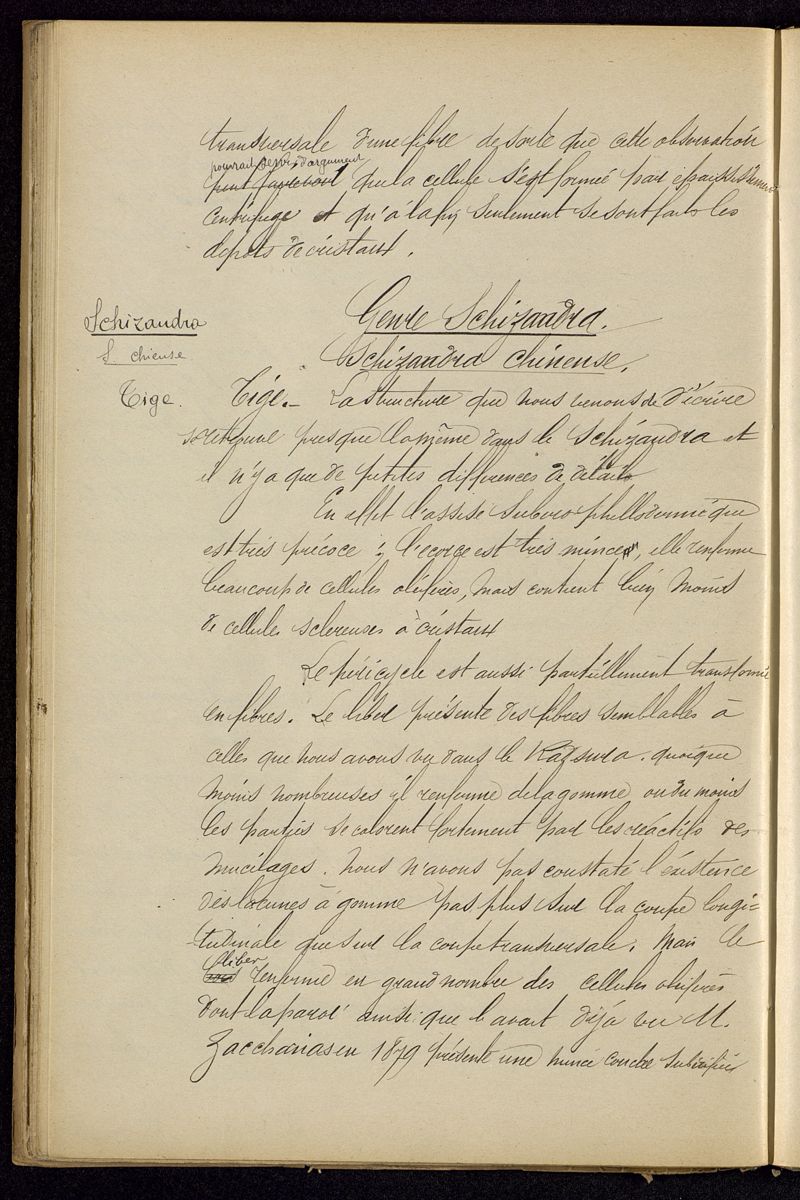 transversale d'une fibre de sorte que cette observation
pourrait servir d'argument
peut que la cellule s'est formée par épaississement
centrifuge et qu'à la fin seulement se sont faits les
depots de cristaux.
Schizandra
Genre Schizandra.
S. chinense
Schizandra chinense.
Tige.
Tige. - La structure que nous venons de décrire
se retrouve presque la même dans le Schizandra et
il n'y a que de petites différences de détails
En effet l'assise subero phellodermique
est très précoce ; l'ecorce est très mince, elle renferme
beaucoup de cellules oléifères, mais contient bien moins
de cellules scléreuses à cristaux
Le péricycle est aussi partiellement transformé
en fibres. Le liber présente des fibres semblables à
celles que nous avons vu dans le Kadsura. quoique
moins nombreuses il renferme de la gomme ou du moins
les parties se colorent fortement par les réactifs des
mucilages. Nous n'avons pas constaté l'éxistence
des lacunes à gomme pas plus sur la coupe longi-
tudinale que sur la coupe transversale. Mais le
liber
renferme en grand nombre des cellules oléifères
dont la paroi ainsi que l'avait déjà vu M.
Zaccharias en 1879 présente une mince couche subérifiée